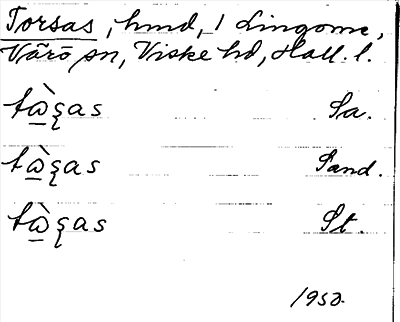 Torsas, hmd, 1 Lingome,
Värö sn, Viske hd, Hall. l.
tὰ̱ʂas Sa.
tὰ̱ʂas Sand.
tὰ̱ʂas St.
1952.